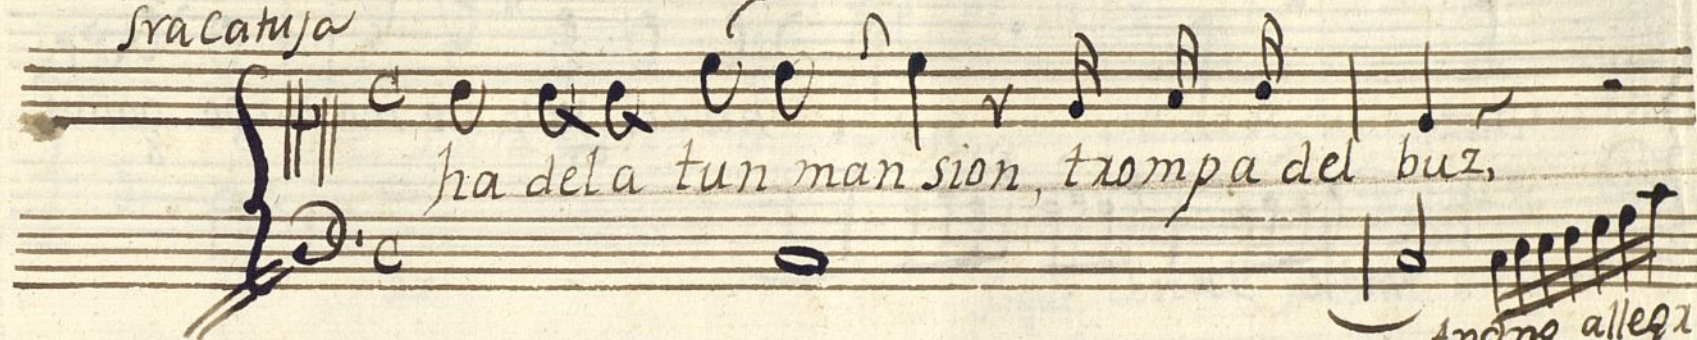 Sra Catuja
ha dela tun mansion, trompa del buz.
allegr